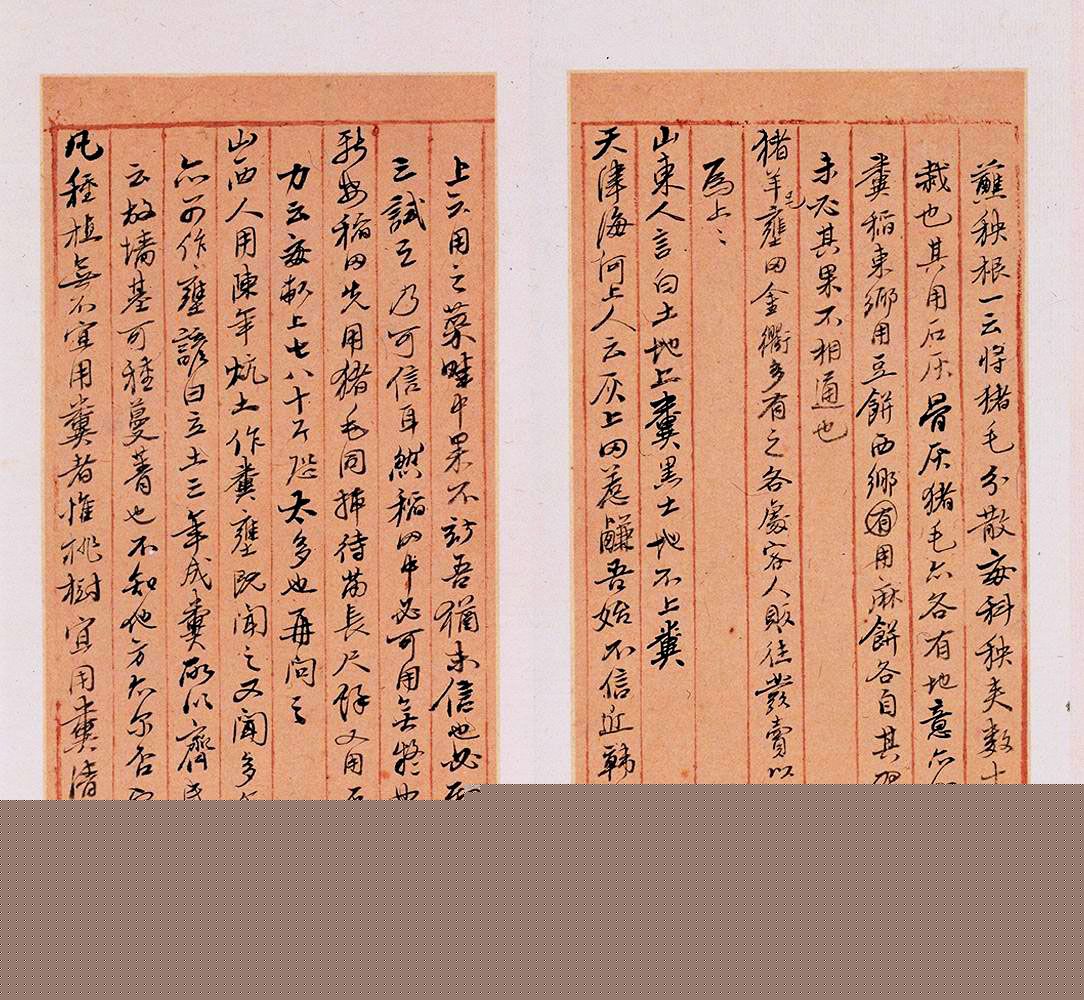 蘸秧根一云将猪毛分散每科秧夹数
栽也其用石灰骨灰猪毛亦各有地意亦
粪稻東鄉用豆餅西鄉有用麻餅各自其
未必其果不相通也
猪羊毛壅田金衢多有之各處客人販往彼賣以
爲上〻
山東人言白土地上糞黑土地不上糞
天津海河上人云灰上田惹鹹吾始不信近韩
上六用之菜畦中果不妨吾猶未信也必
三試之乃可信耳然稻田中必可用無
稻田先用猪毛同插待苗長尺餘又用
力云每畝上七八十斤恐太多也再问之
山西人用陳年炕土作糞壅既闻之又闻多
亦可作壅諺曰立土三年成糞所以齊
云故墻基可種蔓菁也不知他方亦尔否
凡種植無不宜用糞者惟桃樹宜用糞清